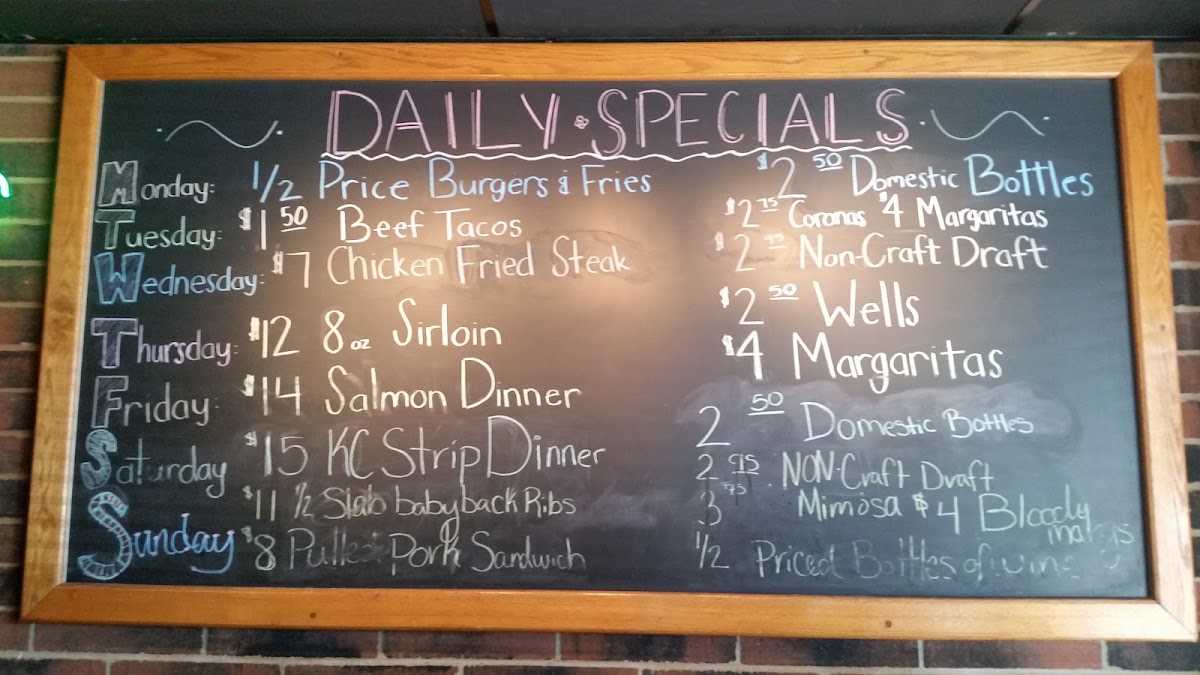 DAILY & SPECIALS
Monday: 1/2 Price Burgers & Fries $2 50 Domestic Bottles
Tuesday: $1 50 Beef Tacos $2 75 Coronas $4 Margaritas
Wednesday: $7 Chicken Fried Steak $2 Non-Craft Draft
Thursday: $12 8 oz Sirloin $2 50 Wells
Friday: $14 Salmon Dinner $4 Margaritas
Saturday $15 KC Strip Dinner 2 50 Domestic Bottles
$11 1/2 Slab babyback Ribs 2 NON-Craft Draft
Sunday 3 75 Mimosa $4 Bloody marys
$8 Pulled Pork Sandwich 1/2 Priced Bottles of wine